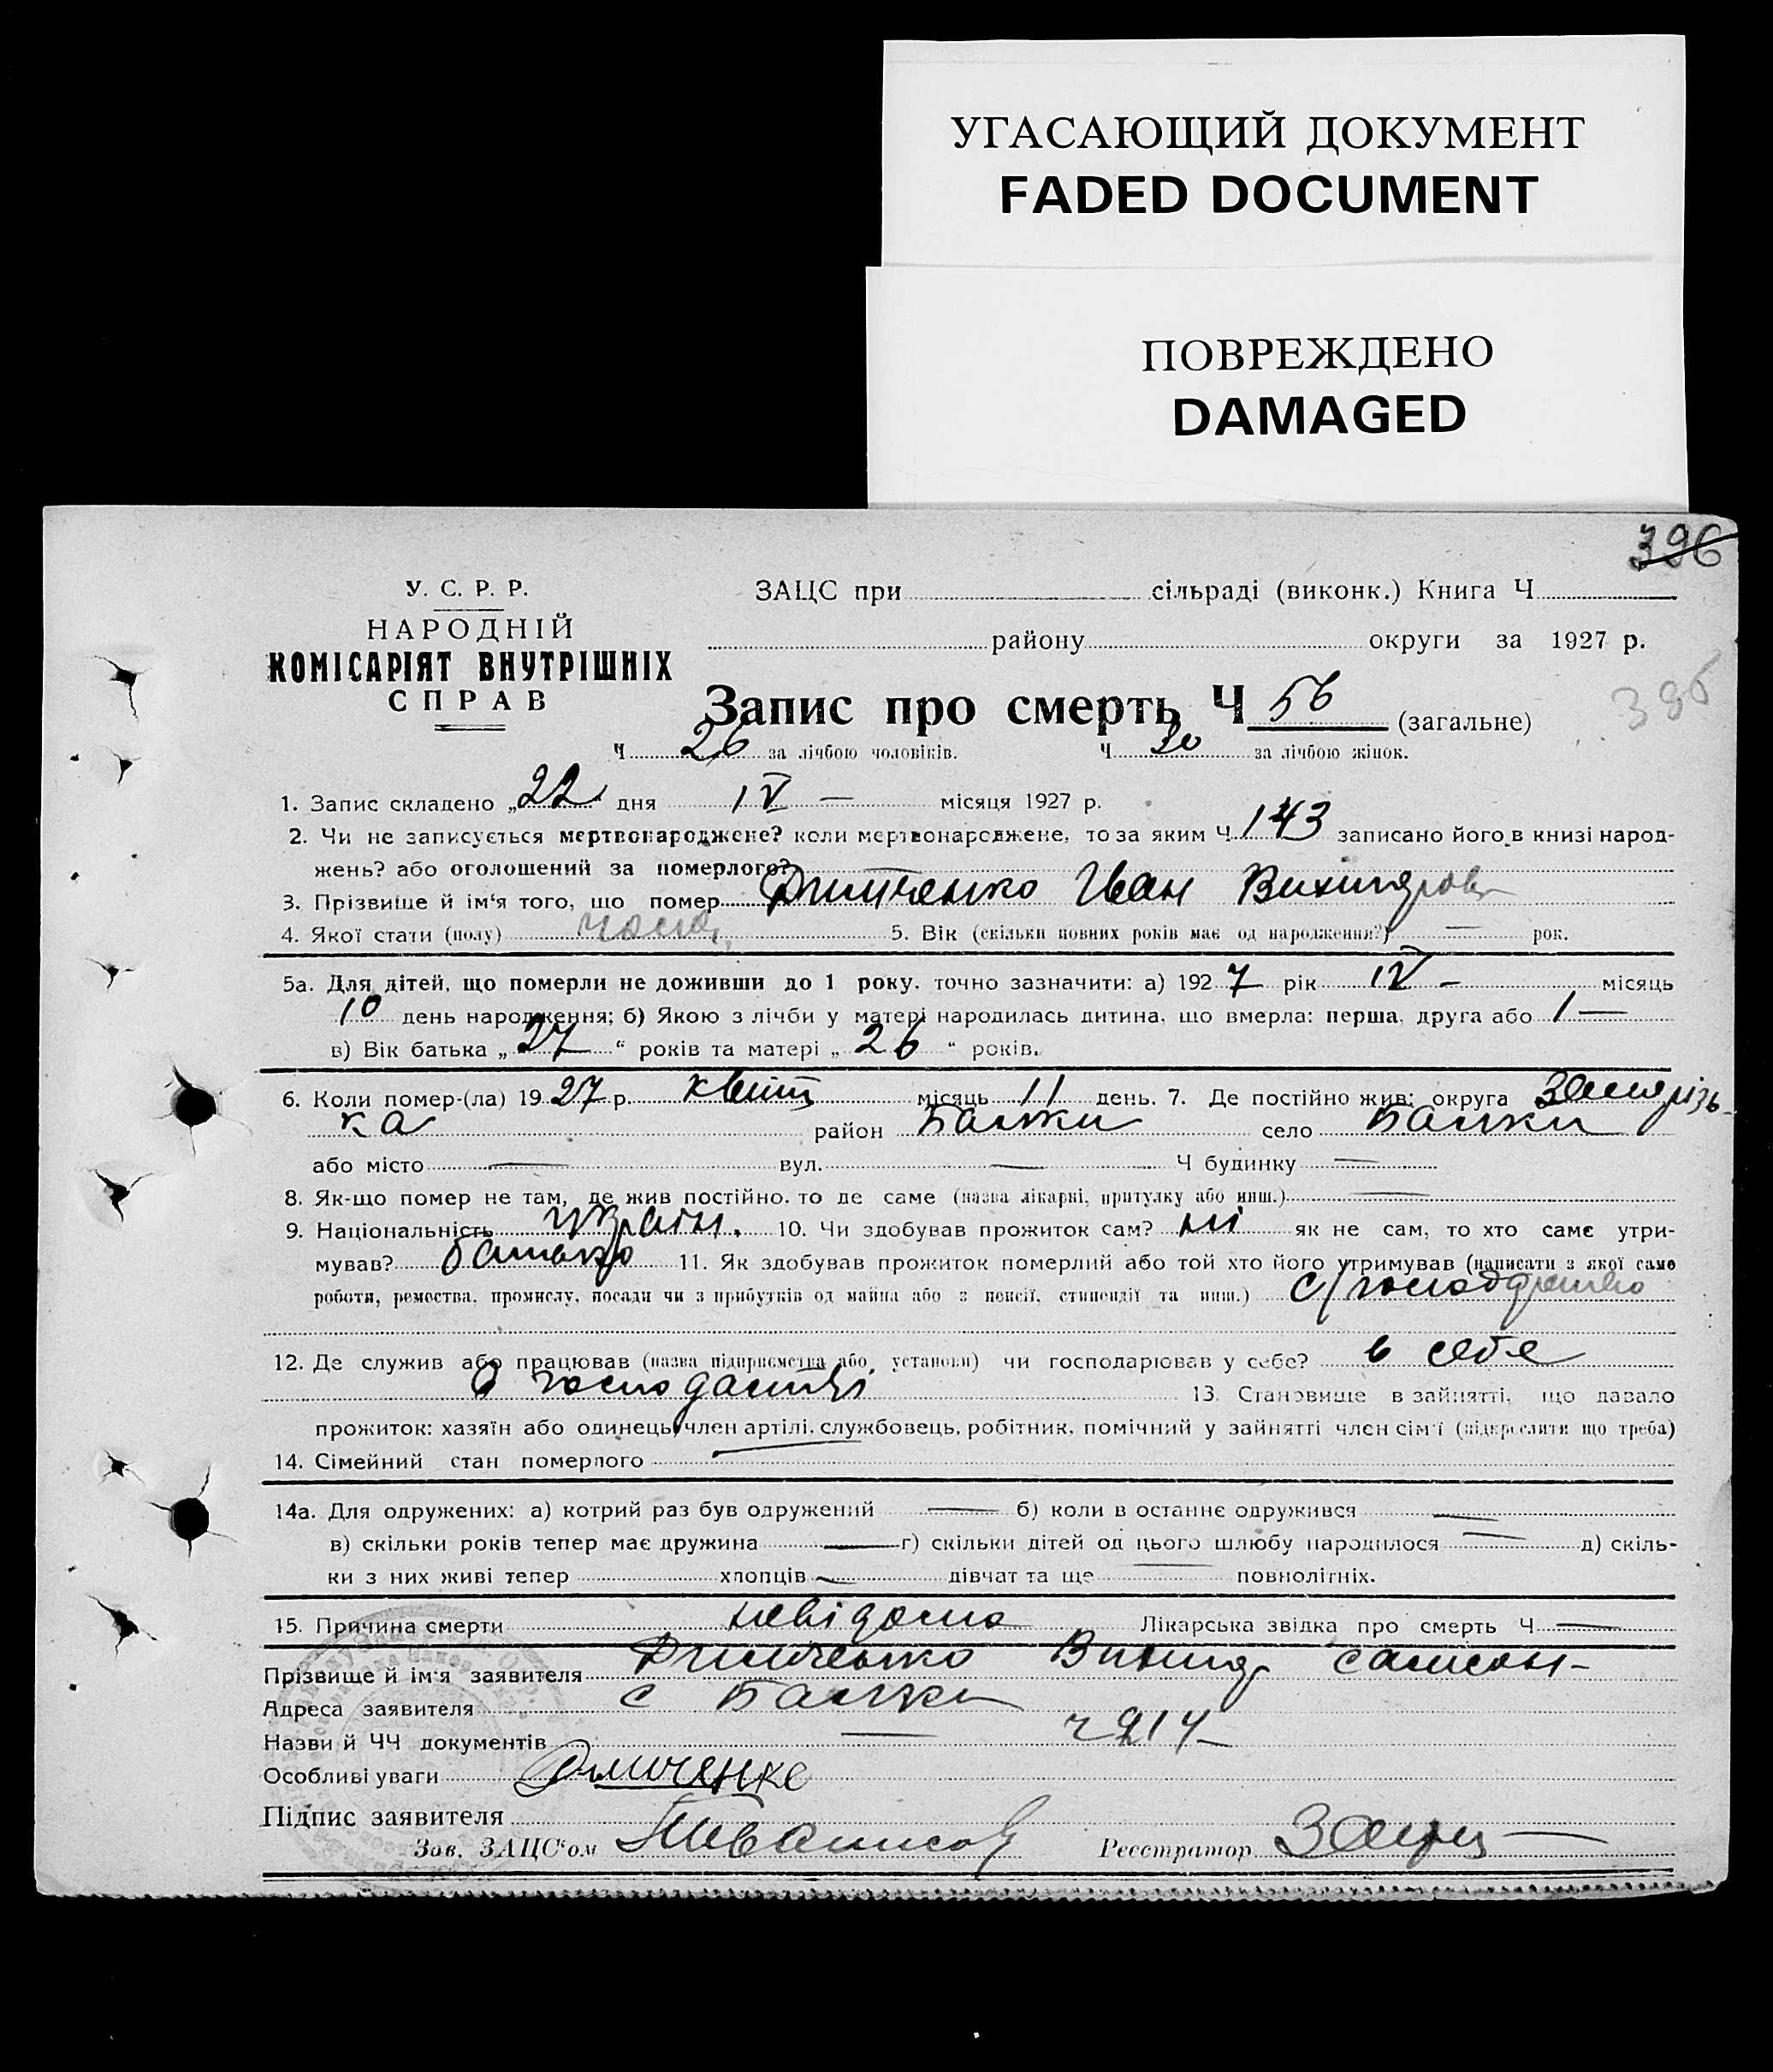 УГАСАЮЩИЙ ДОКУМЕНТ
FADED DOCUMENT
ПОВРЕЖДЕНО
DAMAGED
396
У. С. Р. Р.
НАРОДНІЙ
КОМІСАРІЯТ ВНУТРІШНІХ
СПРАВ
ЗАЦС при сільраді (виконк.) Книга Ч
району округи за 1927 р.
Запис про смерть Ч 56 (загальне)
396
Ч 26 за лічбою чоловіків. Ч 30 за лічбою жінок.
1. Запис складено „22" дня IV — місяця 1927 р.
2. Чи не записується мертвонароджене? коли мертвонароджене, то за яким Ч 143 записано його в книзі народ-
жень? або оголошений за померлого?
3. Прізвище й ім'я того, що помер Іван
4. Якої стати (полу) 5. Вік (скільки повних років має од народження?) — рок.
5а. Для дітей, що померли не доживши до 1 року, точно зазначити: а) 1927 рік IV — місяць
10 день народження; б) Якою з лічби у матері народилась дитина, що вмерла: перша, друга або 1 —
в) Вік батька „27" років та матері „26" років.
6. Коли помер-(ла) 1927 р. квіт місяць 11 день. 7. Де постійно жив: округа Запорізь-
ка район Балки село Балки
або місто — вул. — Ч будинку —
8. Як-що помер не там, де жив постійно, то де саме (назва лікарні, притулку або инш.) —
9. Національність україн. 10. Чи здобував прожиток сам? ні як не сам, то хто саме утри-
мував? батько 11. Як здобував прожиток померлий або той хто його утримував (написати з якої саме
роботи, ремества, промислу, посади чи з прибутків од майна або з пенсії, стипендії та инш.) с/господарство
12. Де служив або працював (назва підприємства або установи) чи господарював у себе? в себе
в господастві 13. Становище в зайнятті, що давало
прожиток: хазяїн або одинець, член артілі, службовець, робітник, помічний у зайнятті член сім'ї (підкреслити що треба)
14. Сімейний стан померлого —
14а. Для одружених: а) котрий раз був одружений — б) коли в останнє одружився —
в) скільки років тепер має дружина — г) скільки дітей од цього шлюбу народилося — д) скіль-
ки з них живі тепер хлопців — дівчат та ще — повнолітніх.
15. Причина смерти невідома Лікарська звідка про смерть Ч —
Прізвище й ім'я заявителя Самсон-
Адреса заявителя с Балки
Назви й ЧЧ документів —
Особливі уваги
Підпис заявителя
Зав. ЗАЦС'ом Реєстратор Заяц